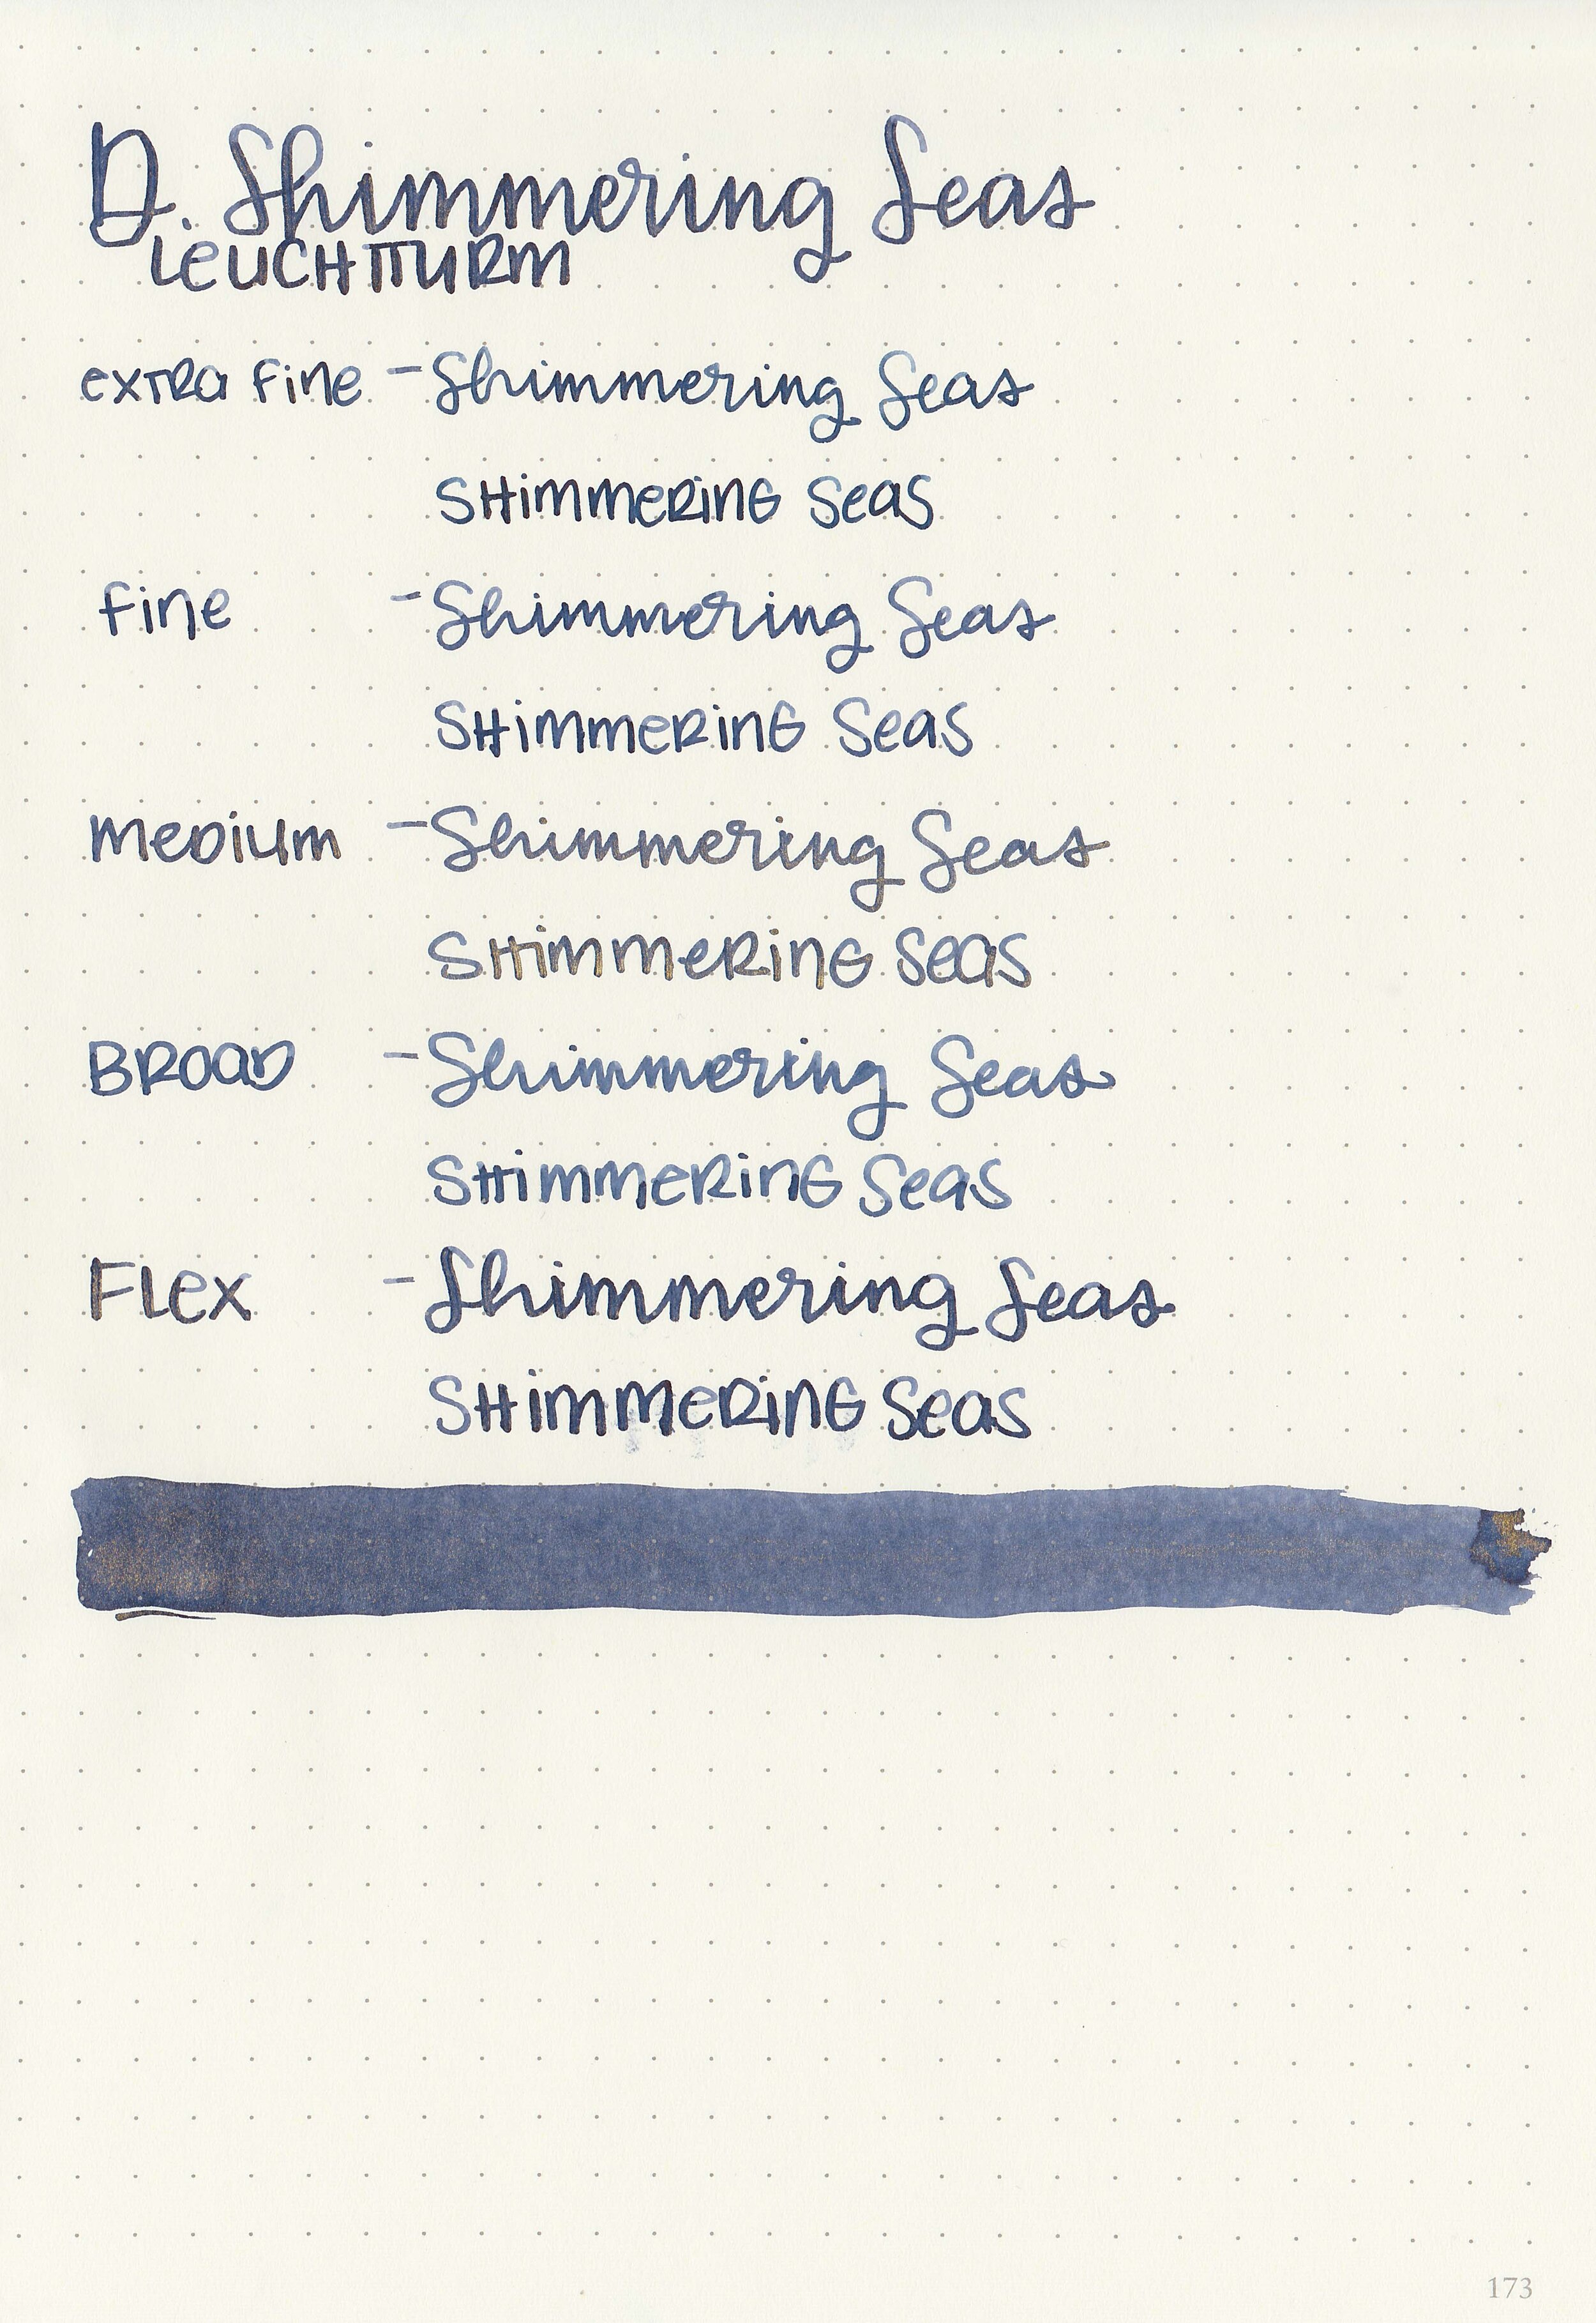 D. Shimmering Seas
LEUCHTTURM
extra fine - Shimmering Seas
SHIMMERING SeaS
fine - Shimmering Seas
SHIMMERING SeaS
MeDIUM - Shimmering Seas
SHIMMERING SeaS
BROAD - Shimmering Seas
SHIMMERING SeaS
FLex - Shimmering Seas
SHIMMERING SeaS
173